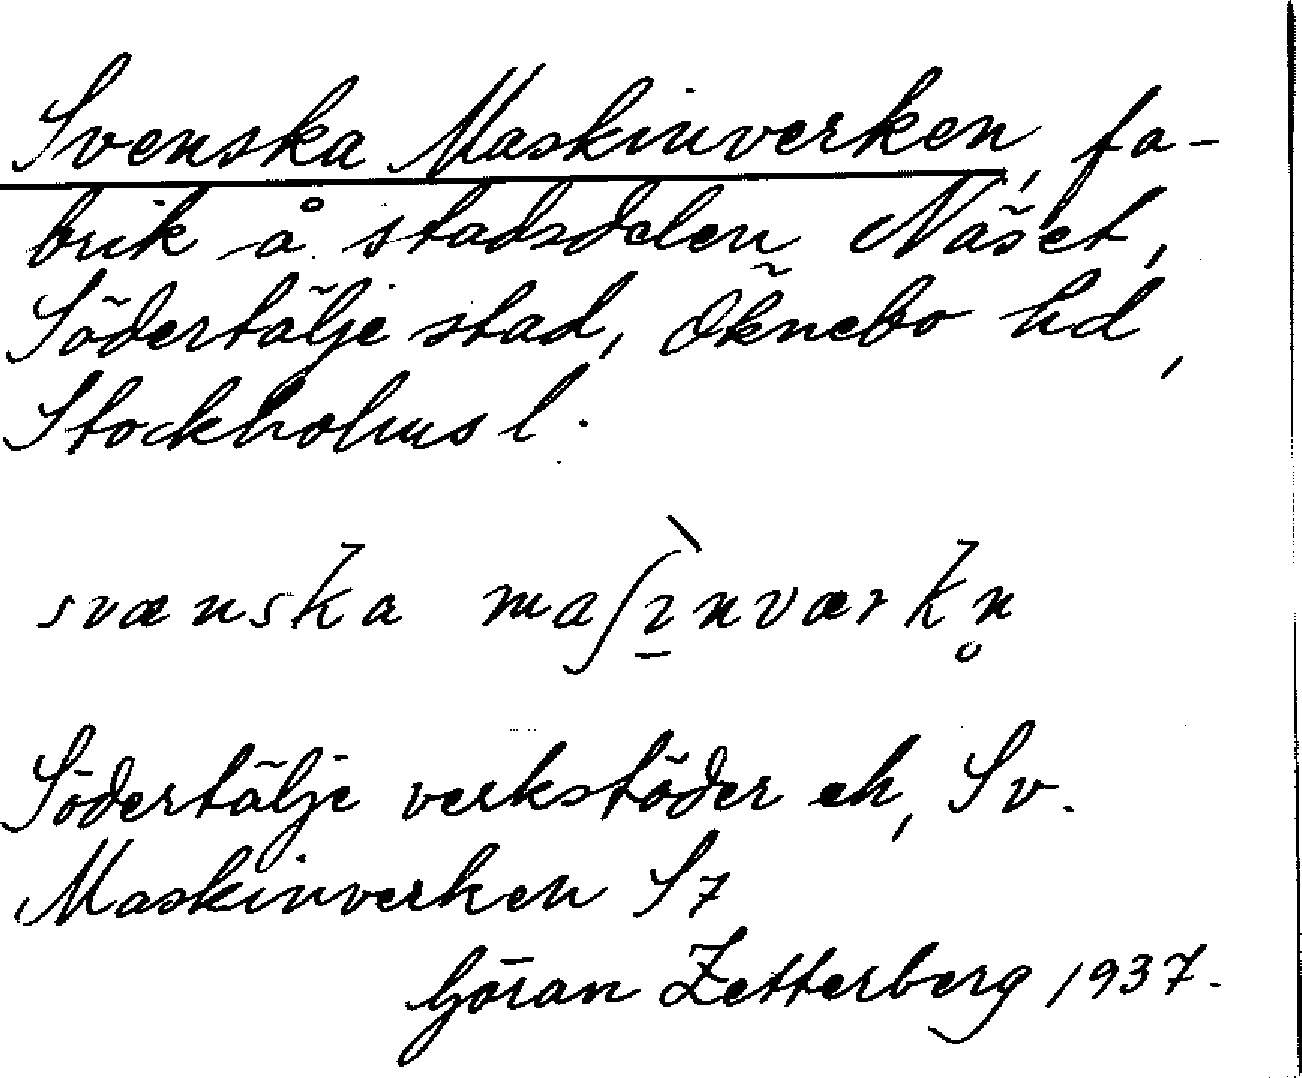 Svenska Maskinverken, fa-
brik å stadsdelen Näset,
Södertälje stad, Öknebo hd,
Stockholms l.
svænska maʃìnværkn̥
Södertälje verkstäder eh, Sv.
Maskinverken S7
Göran Zetterberg 1937.